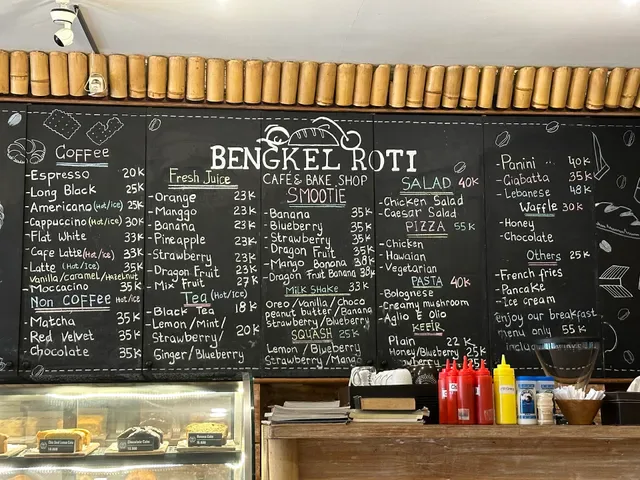 BENGKEL ROTI
CAFÉ & BAKE SHOP
Coffee
Espresso 20K
Long Black 25K
Americano (Hot/ice) 25K
Cappuccino (Hot/ice) 30K
Flat White 33K
Cafe Latte (Hot/ice) 33K
Latte (Hot/ice) 35K
Vanilla/Caramel/Hazelnut
Moccacino 35K
NON COFFEE Hot/ice
Matcha 35K
Red Velvet 35K
Chocolate 35K
Fresh Juice
Orange 23K
Manggo 23K
Banana 23K
Pineapple 23K
Strawberry 23K
Dragon Fruit 23K
Mix Fruit 27K
Tea (Hot/ice)
Black Tea 18K
Lemon/Mint/
Strawberry 20K
Ginger/Blueberry
SMOOTIE
Banana 35K
Blueberry 35K
Strawberry 35K
Dragon Fruit 35K
Mango Banana 38K
Dragon Fruit Banana 38K
MILK SHAKE 33K
Oreo/Vanilla/choco
peanut butter/Banana
Strawberry/Blueberry
SQUASH 25K
Lemon/Blueberry
Strawberry/Mango
SALAD 40K
Chicken Salad
Caesar Salad
PIZZA 55K
Chicken
Hawaiian
Vegetarian
PASTA 40K
Bolognese
Creamy mushroom
Aglio E Olio
KEFIR
Plain 22K
Honey/Blueberry 25K
Panini 40K
Ciabatta 35K
Lebanese 48K
Waffle 30K
Honey
Chocolate
Others 25K
French fries
Pancake
Ice cream
enjoy our breakfast
menu only 55K